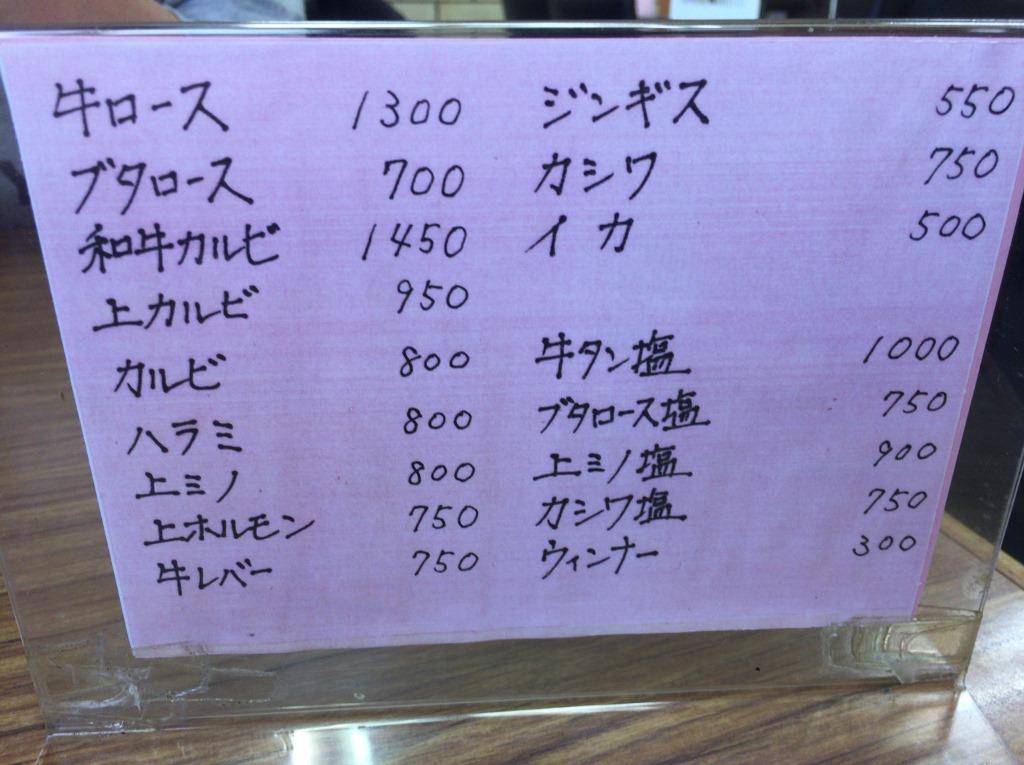 牛ロース 1300
ブタロース 700
和牛カルビ 1450
上カルビ 950
カルビ 800
ハラミ 800
上ミノ 800
上ホルモン 750
牛レバー 750
ジンギス 550
カシワ 750
イカ 500
牛タン塩 1000
ブタロース塩 750
上ミノ塩 900
カシワ塩 750
ウィンナー 300